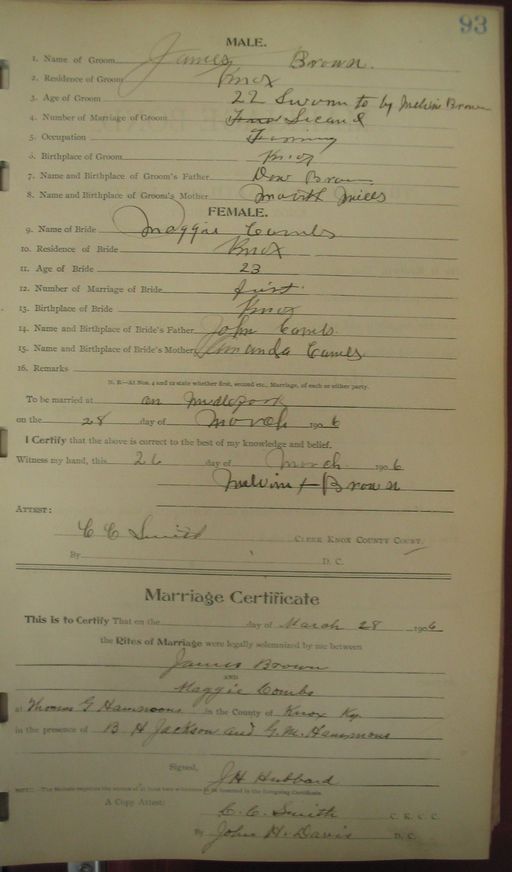 93
MALE.
1. Name of Groom James Brown.
2. Residence of Groom Knox
3. Age of Groom 22 Sworn to by Melvin Brown
4. Number of Marriage of Groom Second
5. Occupation Farming
6. Birthplace of Groom Knox
7. Name and Birthplace of Groom's Father Dow Brown
8. Name and Birthplace of Groom's Mother Mills
FEMALE.
9. Name of Bride Maggie Combs
10. Residence of Bride Knox
11. Age of Bride 23
12. Number of Marriage of Bride first
13. Birthplace of Bride Knox
14. Name and Birthplace of Bride's Father John Combs
15. Name and Birthplace of Bride's Mother Amanda Combs
16. Remarks
N. B.—At Nos. 4 and 12 state whether first, second etc., Marriage, of each or either party.
To be married at on
on the 28 day of March 1906
I Certify that the above is correct to the best of my knowledge and belief.
Witness my hand, this 26 day of March 1906
Melvin + Brown
ATTEST:
C C Smith CLERK KNOX COUNTY COURT.
By D. C.
Marriage Certificate
This is to Certify That on the day of March 28 1906
the Rites of Marriage were legally solemnized by me between
James Brown
AND
Maggie Combs
at Thomas G Hammons in the County of Knox Ky.
in the presence of B H Jackson and G. M. Hammons
Signed, J H Hubbard
A Copy Attest: C. C. Smith C. K. C. C.
By John H. Davis D. C.